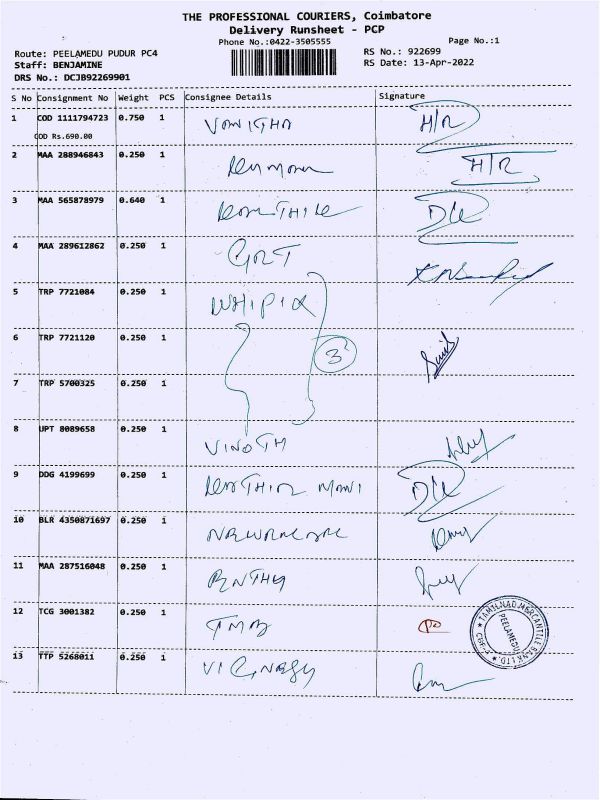 THE PROFESSIONAL COURIERS, Coimbatore
Delivery Runsheet - PCP
Phone No.:0422-3505555
Page No.:1
Route: PEELAMEDU PUDUR PC4
RS No.: 922699
Staff: BENJAMINE
RS Date: 13-Apr-2022
DRS No.: DCJB92269901
S No Consignment No Weight PCS Consignee Details Signature
1 COD 1111794723 0.750 1 VANITHA H/R
COD Rs.690.00
2 MAA 288946843 0.250 1 H/R
3 MAA 565878979 0.640 1 D/L
4 MAA 289612862 0.250 1 GRT
5 TRP 7721084 0.250 1 WHIPIX
6 TRP 7721120 0.250 1 3
7 TRP 5700325 0.250 1
8 UPT 8089658 0.250 1 VINOTH
9 DDG 4199699 0.250 1 MANI D/L
10 BLR 4350871697 0.250 1
11 MAA 287516048 0.250 1
12 TCG 3001382 0.250 1 TMB
TAMILNAD MERCANTILE BANK LTD.
PEELAMEDU
13 TTP 5268011 0.250 1